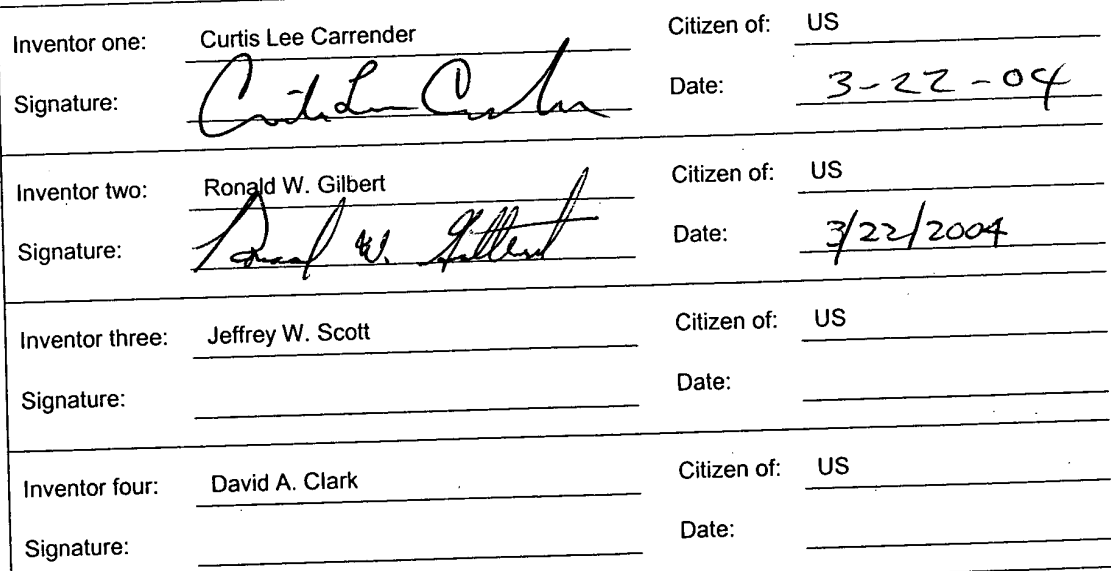 Inventor one: Curtis Lee Carrender Citizen of: US
Signature: Curtis Lee Carrender Date: 3-22-04
Inventor two: Ronald W. Gilbert Citizen of: US
Signature: Ronald W. Gilbert Date: 3/22/2004
Inventor three: Jeffrey W. Scott Citizen of: US
Signature: Date:
Inventor four: David A. Clark Citizen of: US
Signature: Date: